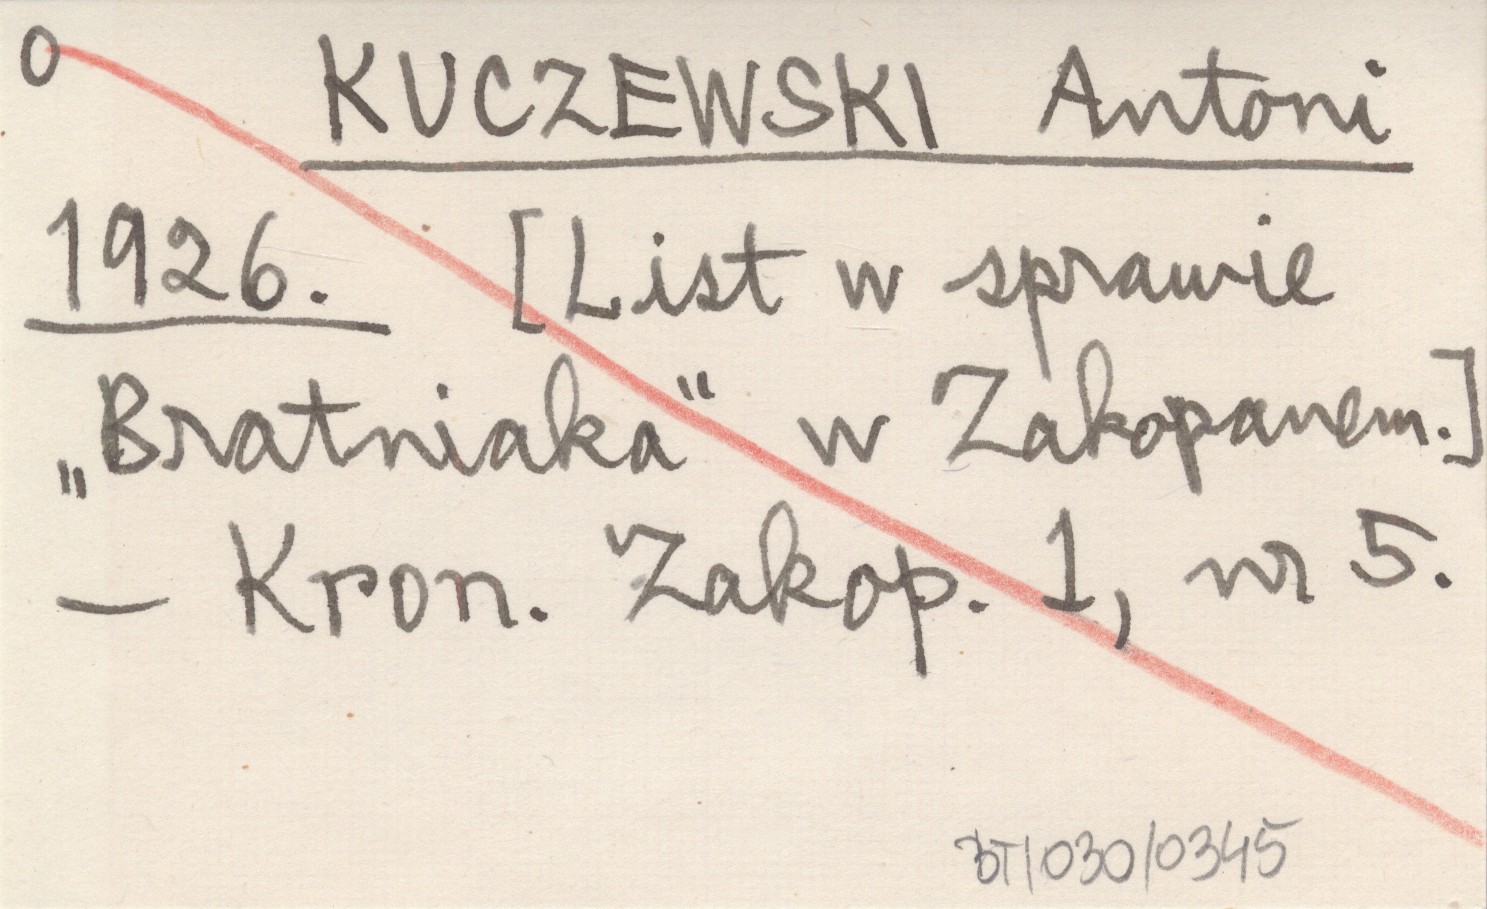 O KUCZEWSKI Antoni
1926. [List w sprawie
„Bratniaka“ w Zakopanem.]
— Kron. Zakop. 1, nr 5.
BT/030/0345